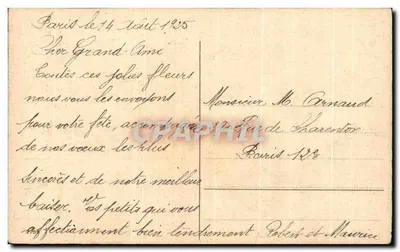 Paris le 14 Août 1925
Cher Grand-Ami
Toutes ces jolies fleurs
nous vous les envoyons
pour votre fête,
de nos vœux les plus
sincères et de notre meilleur
baiser. Vos petits qui vous
affectionnent bien tendrement Robert et Maurice
Monsieur M. Arnaud
Rue de Charenton
Paris 12E
CPAPHIL